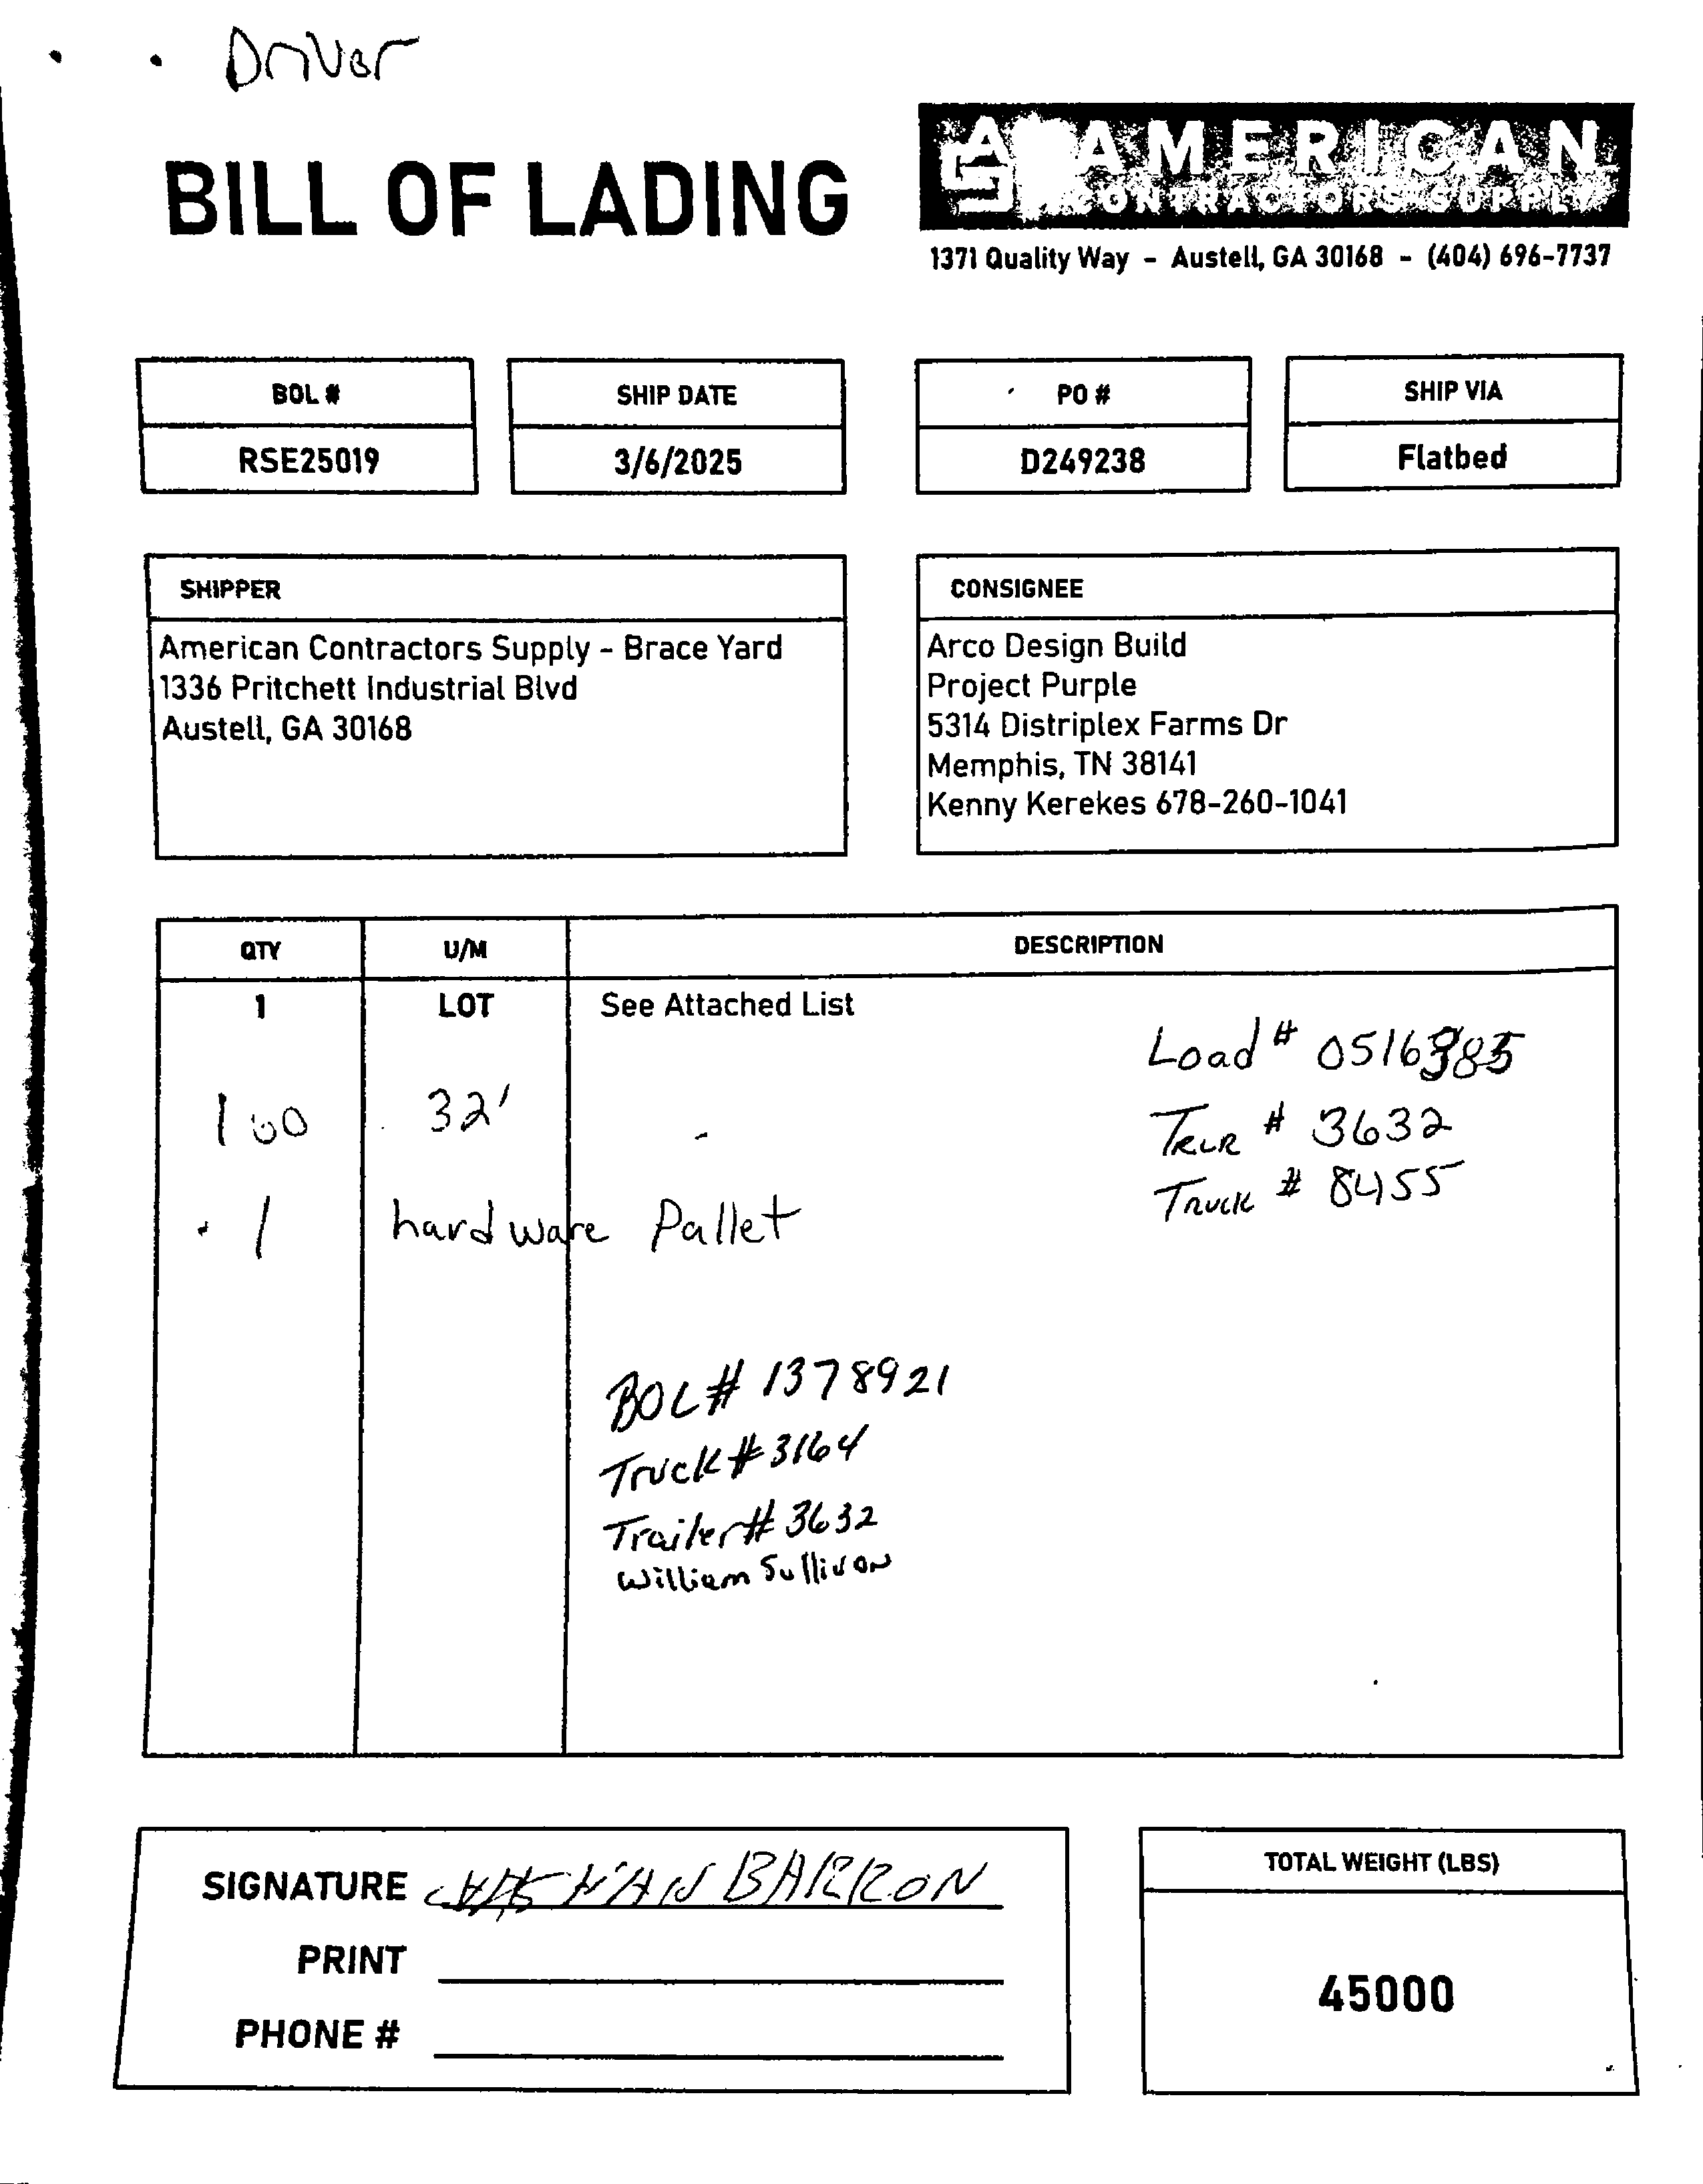 Driver
BILL OF LADING
AMERICAN
CONTRACTORS SUPPLY
1371 Quality Way - Austell, GA 30168 - (404) 696-7737
BOL #
RSE25019
SHIP DATE
3/6/2025
PO #
D249238
SHIP VIA
Flatbed
SHIPPER
American Contractors Supply - Brace Yard
1336 Pritchett Industrial Blvd
Austell, GA 30168
CONSIGNEE
Arco Design Build
Project Purple
5314 Distriplex Farms Dr
Memphis, TN 38141
Kenny Kerekes 678-260-1041
QTY U/M DESCRIPTION
1 LOT See Attached List
Load #
100 32'
TRLR # 3632
Truck # 8455
1 hardware Pallet
BOL# 1378921
Truck# 3164
Trailer# 3632
William Sullivan
SIGNATURE BARRON
PRINT
PHONE #
TOTAL WEIGHT (LBS)
45000